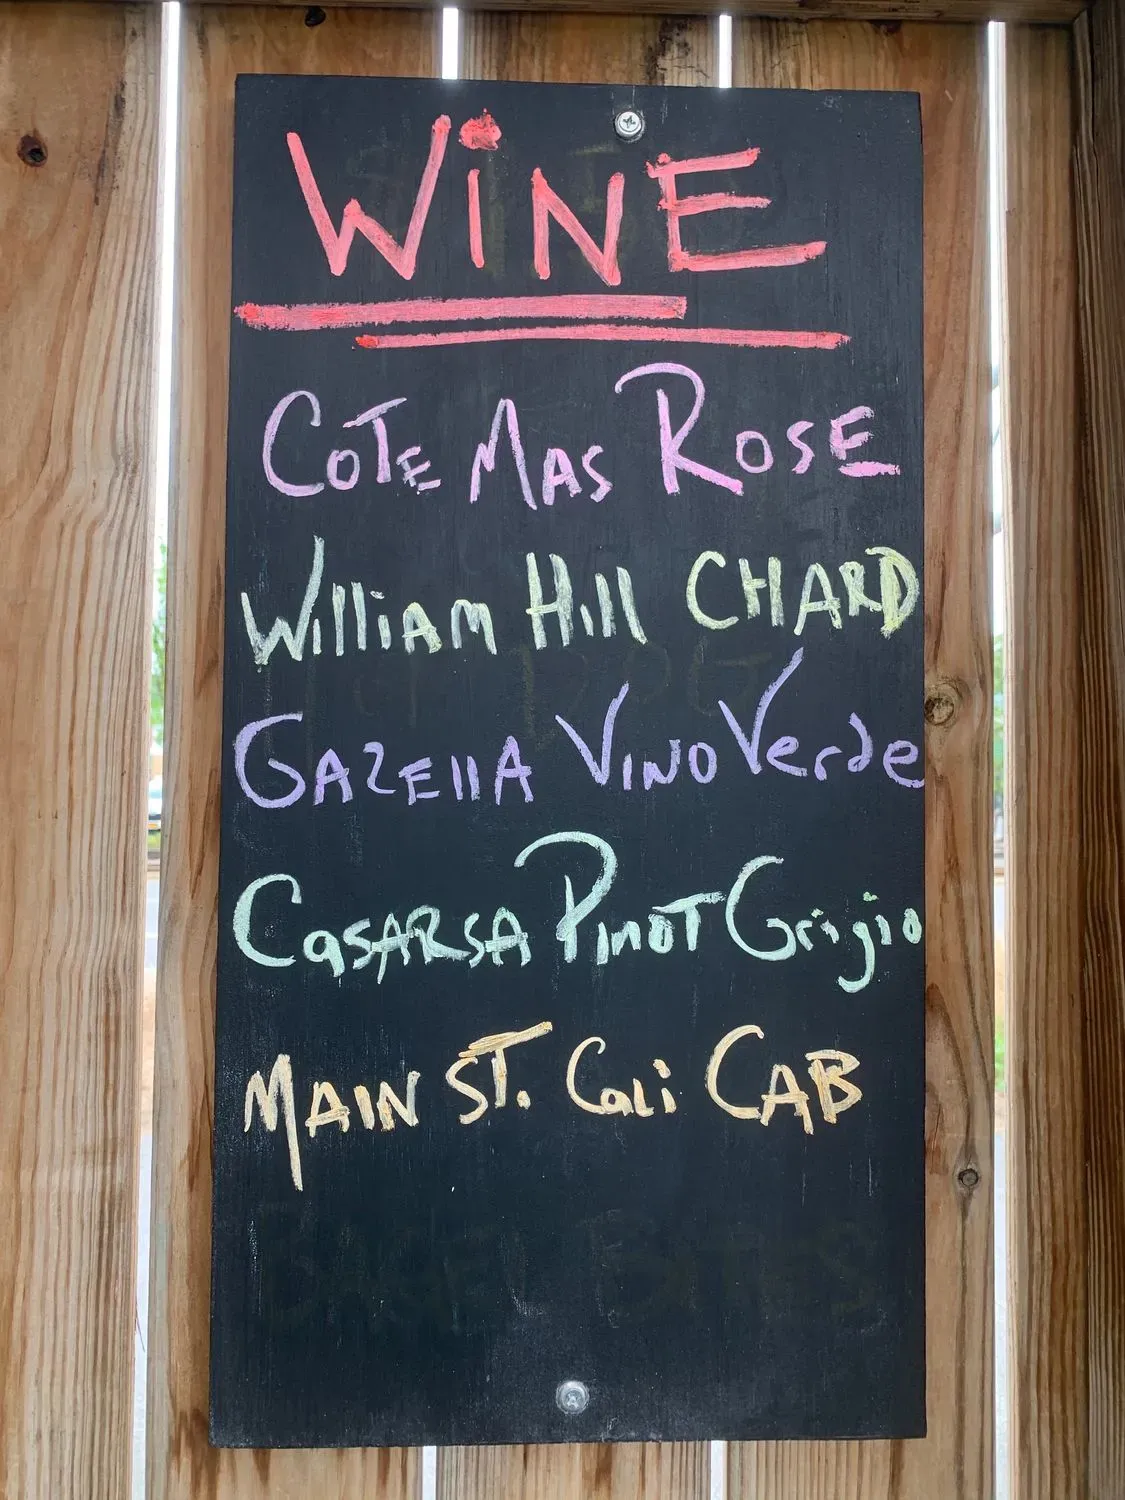 WiNE
COTE MAS ROSE
William Hill CHARD
GAZEllA VINO Verde
CasARSA PINOT Grigio
MAIN ST. Cali CAB